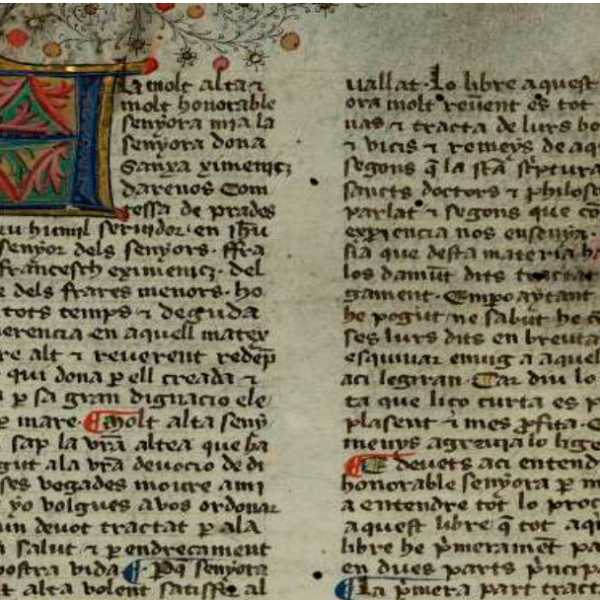 la molt alta ⁊
molt honorable
senyora mia la
senyora dona
Sanxa ximeniç
darenos Com
tessa de prades
eu humil servidor en ihu
senyor dels senyors. ffra
francesch eximeniç. del
dels frares menors. ho
tots temps ⁊ deguda
erencia en aquell matex
re alt ⁊ reverent redẽp
qui dona p ell creada ⁊
p sa gran dignacio ele
mare. Molt alta seny
sap la vrã altea que ha
gut ala vrã devocio de di
ses vegades moure ami
yo volgues avos ordonar
un devot tractat p ala
salut ⁊ p endreçament
vostra vida. senyora
alta volent satisfer al
vallat. Lo libre aquest
ora molt revent es tot
vas ⁊ tracta de lurs bo
⁊ vicis ⁊ remeys de aq
segons q̃ la scã scptura
sancts doctors ⁊ philoso
parlat ⁊ segons que co
experiencia nos ensenya.
sia que desta materia ha
los damũt dits tractat
gament. Empo aytant
he pogut ne sabut he
ses lurs dits en breu
esquivar enuig a aquel
aci legiran. Car diu lo
ta que liço curta es p
plasent ⁊ mes pfita.
menys agrevia lo lige
devets aci entend
honorable senyora p m
a entendre tot lo pro
aquest libre q̃ tot aq
libre he pmerament pa
en dues parts pncipa
La pmera part tract